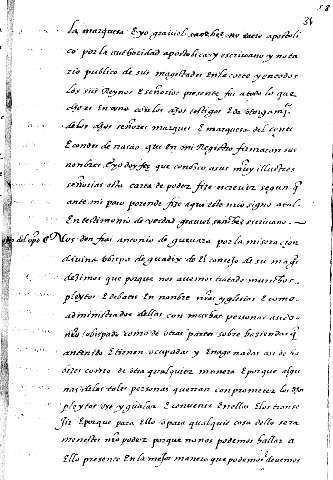 la marquesa E yo graviel sanchez notario apostoli
co por la authoridad apostolica y escrivano y nota
rio publico de sus magestades En la corte y en todos
los sus Reynos E señorios presente fui a todo lo que
dho es En uno con los dhos testigos E de otorgami.
de los dhos señores marques E marquesa del cenete
E condes de nasao que en mi Registro firmaron sus
nonbres E yo doy fee que conosco a sus muy Illustres
señorias esta carta de poder fize escrevir segun q
ante mi paso porende fize aqui este mio signo a tal
En testimonio de verdad graviel sanchez escrivano
del opo Nos don frai antonio de guevara por la miseraçion
divina obispo de guadix del Consejo de su magt
dezimos que porque nos avemos tratado muchos
pleytos E debates En nonbre nra yglesia E como
administrador della con muchas personas asi do
nro obispado como de otras partes sobre haziendas q
an tenido E tienen ocupadas y Enagenadas asi de ha
bizes como de otra qualquiera manera E porque algu
nas de las tales personas querran conprometer los
pleytos vse y gualar E convenir En ellos E los transe
jir E porque para Ello o para qualquier cosa dello sera
menester nro poder porque no nos podemos hallar a
Ello presente En la mejor manera que podemos E devemos